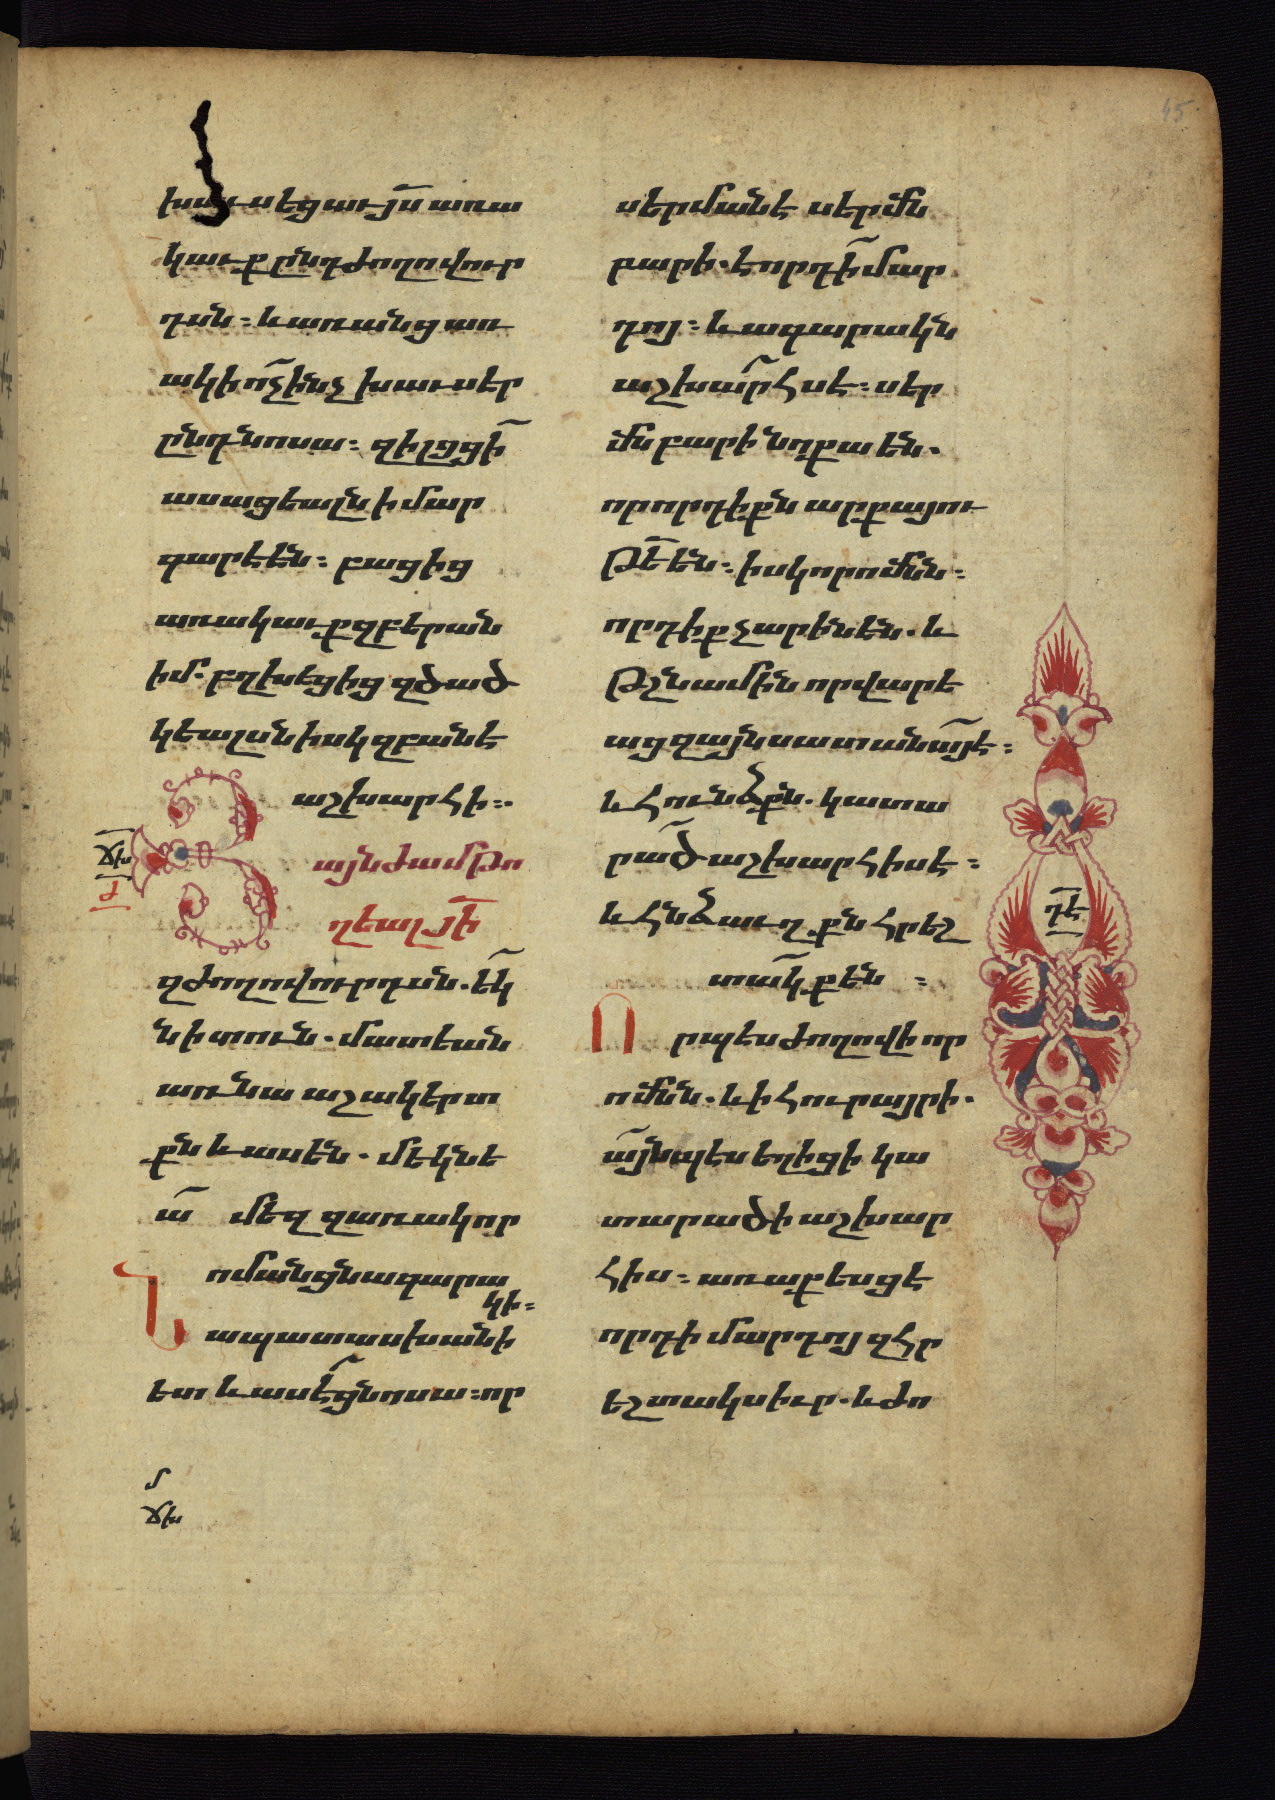 խաւսեցաւ յս առա
կաւք ընդ ժողովուր
դսն ։ և առանց առ
ակի ոչինչ խաւսէր
ընդ նոսա ։ զի լցցի
ասացեալն ի մար
գարէէն ։ բացից
առակաւք զբերան
իմ . բղխեցից զծած
կեալսն իսկզբանէ
աշխարհի ։.
այնժամ թո
ղեալ յի
զժողովուրդսն . եկ
ն ի տուն . մատեան
առ նա աշակերտ
քն և ասեն . մեկնե
ա մեզ զառակ որ
ոմանցն ագարա
կի ։
ապատասխանի
ետ և ասէ ցնոսա ։ որ
մ
ճխ
ճխ
ժ
սերմանէ սերմն
բարի . է որդի մար
դոյ ։ և ագարակն
աշխարհս է ։ սեր
մն բարի նոքա են .
որ որդիքն արքայու
թե են ։ իսկ որոմնն ։
որդիք չարին են . և
թշնամին որ վարե
աց զայն սատանայ է ։
և հունձքն . կատա
րած աշխարհիս է ։
և հնձաւղքն հրեշ
տակք են ։
Որպէս ժողովի որ
ոմնն . և ի հուր այրի .
այնպէս եղիցի կա
տարածի աշխար
հիս ։ առաքեսցէ
որդի մարդոյ զհր
եշտակս իւր . և ժո
ղէ
45